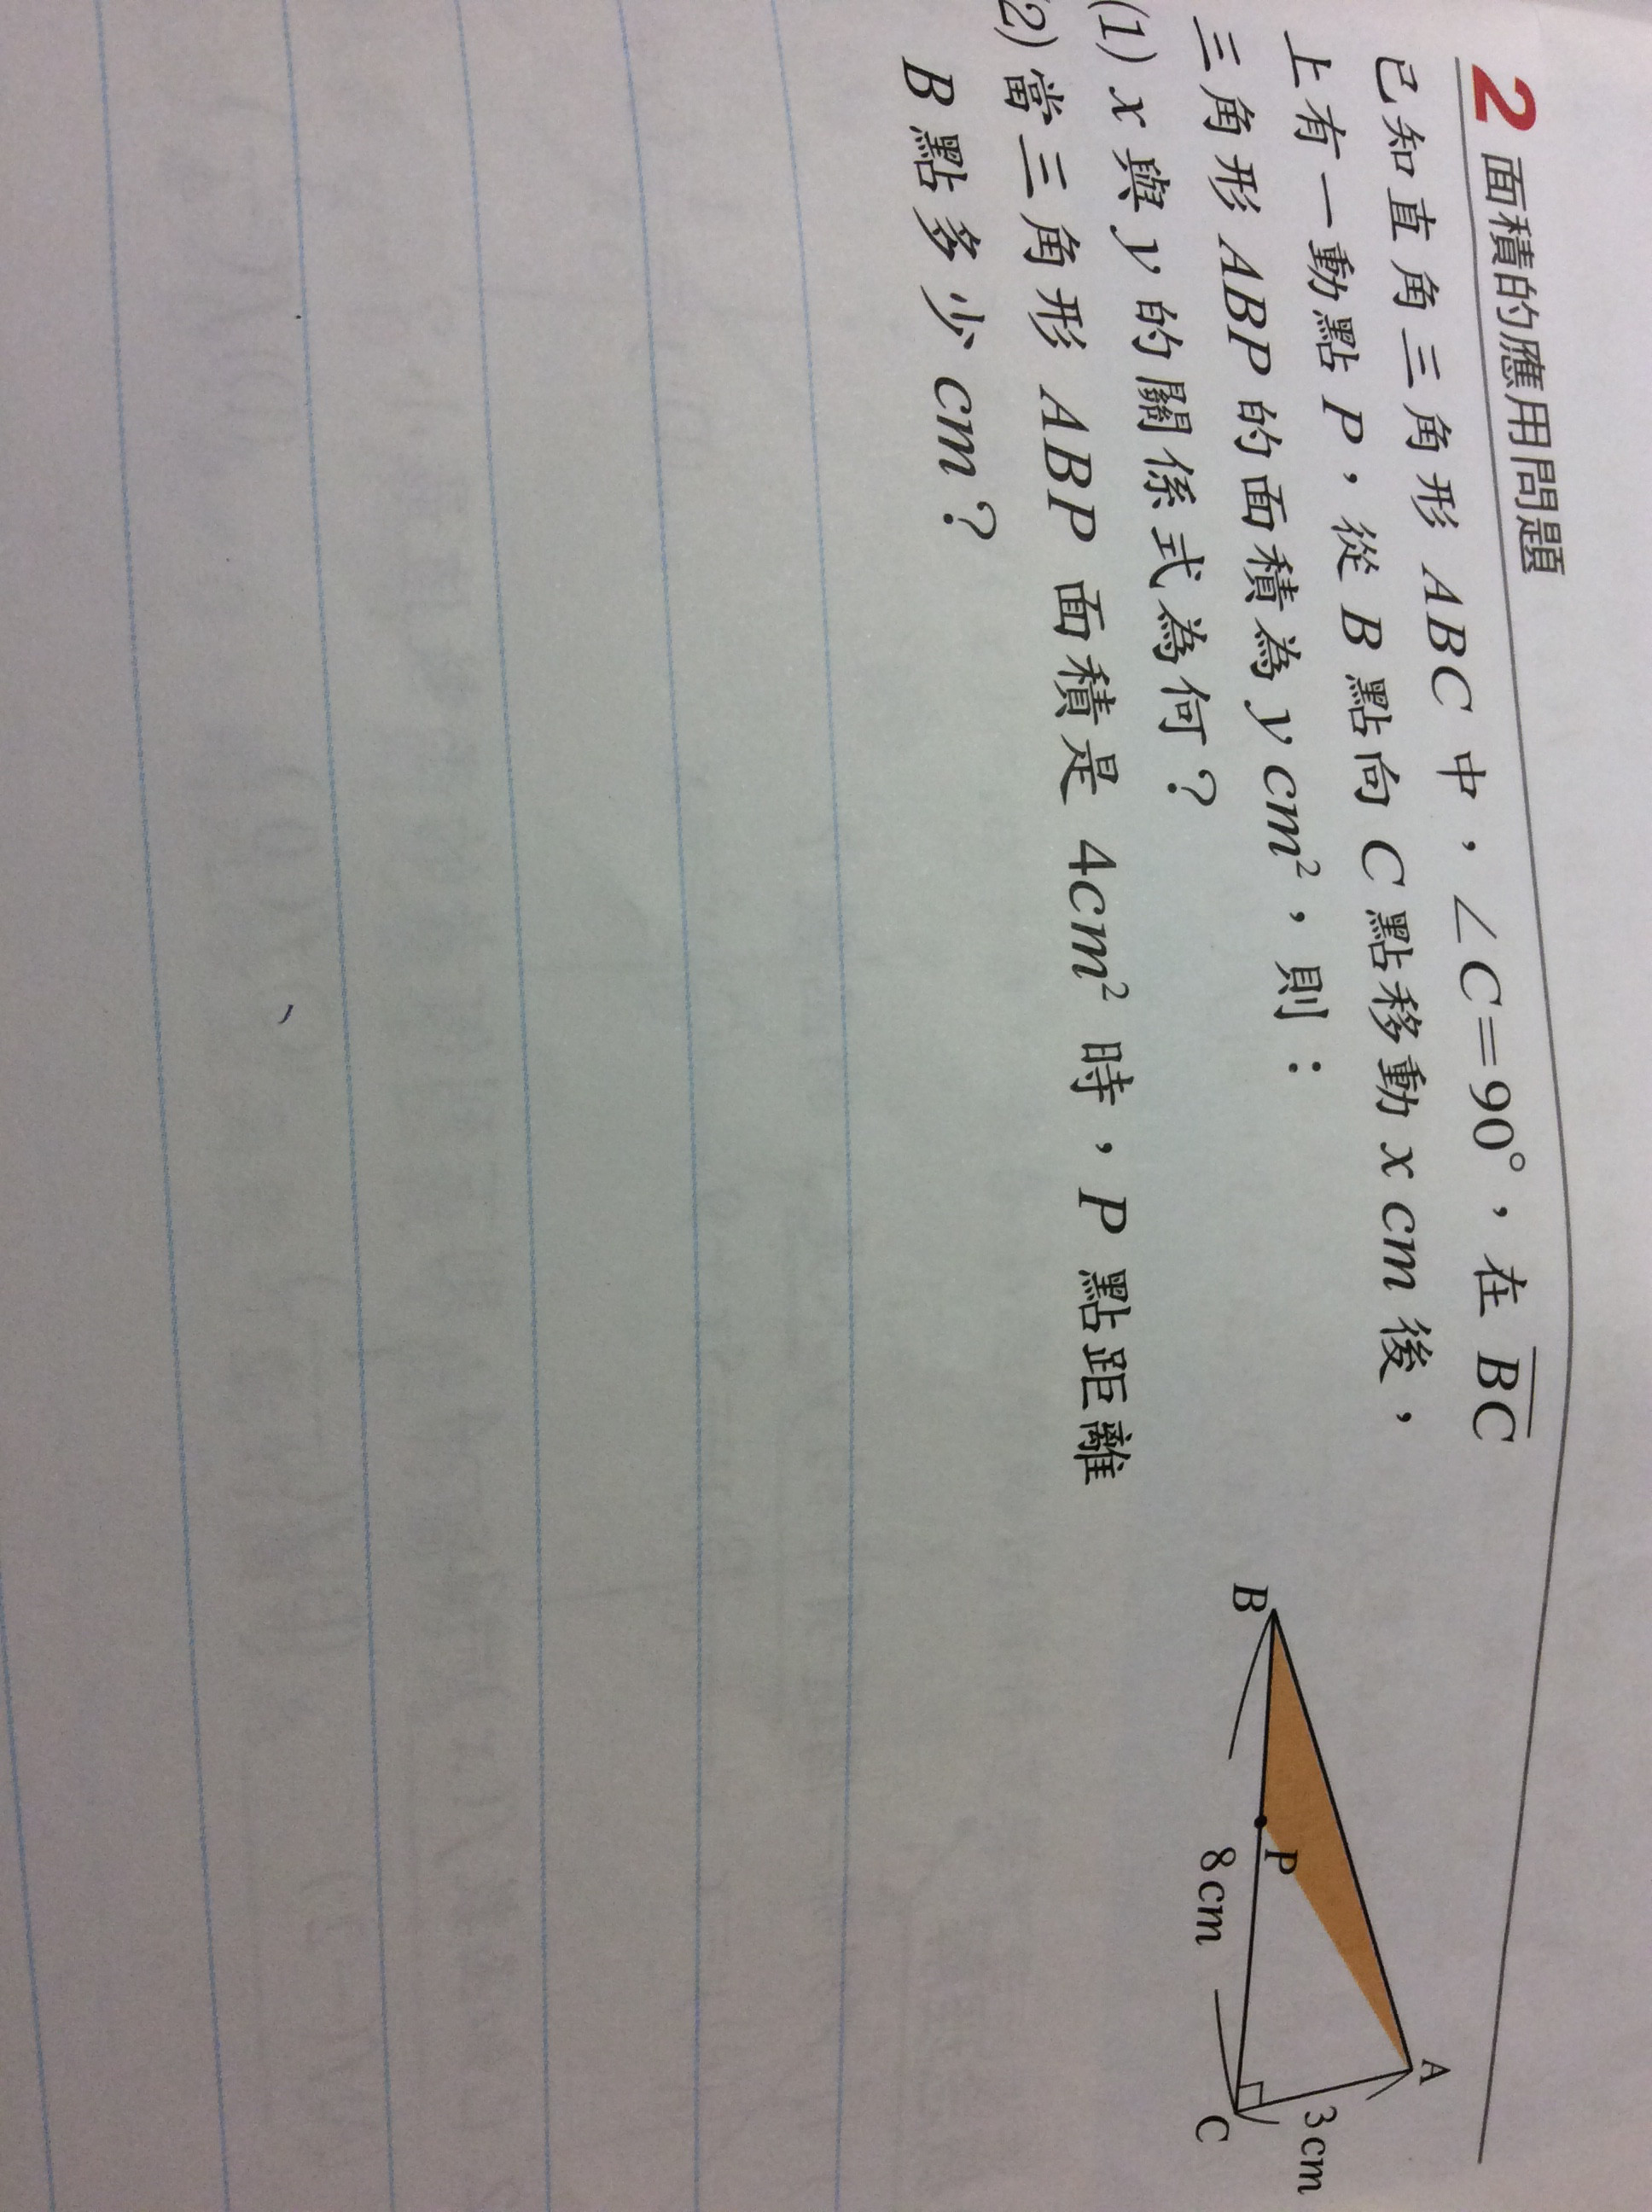 2 面積的應用問題
已知直角三角形 ABC 中，∠C=90°，在 BC
上有一動點 P，從 B 點向 C 點移動 x cm 後，
三角形 ABP 的面積為 y cm²，則：
(1) x 與 y 的關係式為何？
(2) 當三角形 ABP 面積是 4cm² 時，P 點距離
B 點多少 cm？
A
3cm
B
P
8cm
C